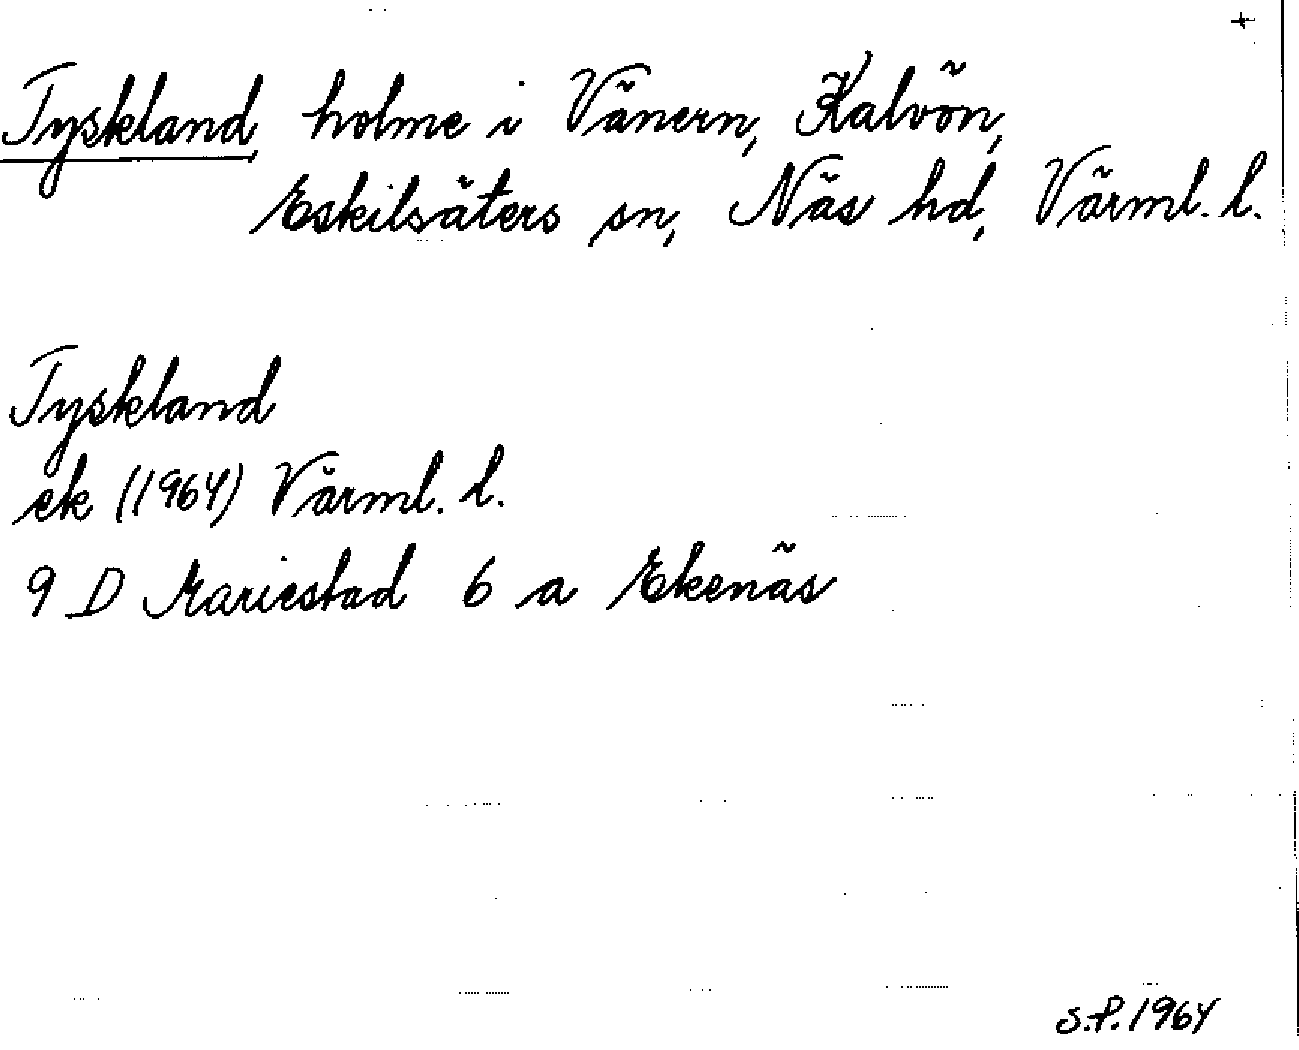 +
Tyskland, holme i Vänern, Kalvön,
Eskilsäters sn, Näs hd, Värml. l.
Tyskland
ek (1964) Värml. l.
9 D Mariestad 6 a Ekenäs
S.P. 1964